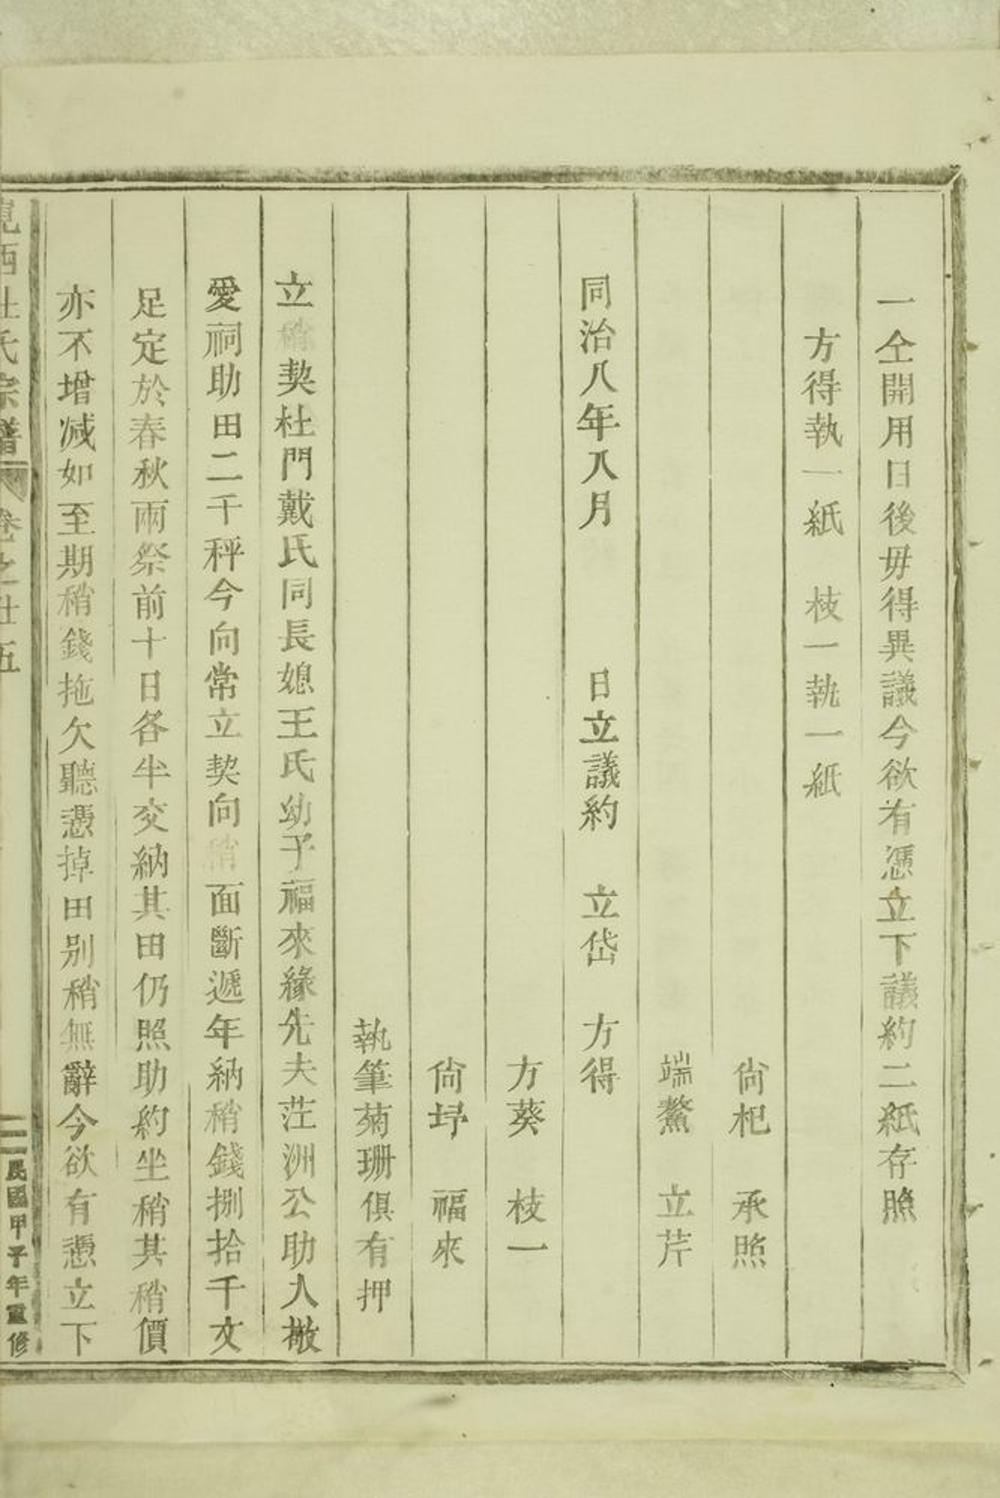 一仝開用日後毋得異議今欲有憑立下議約二紙存照
方得執一紙　枝一執一紙
尙杞　承照
端鰲　立芹
同治八年八月　　　日立議約　立岱　方得
方葵　枝一
尙㘧　福來
執筆菊珊俱有押
立稍契杜門戴氏同長媳王氏幼子福來緣先夫茳洲公助入敝
愛祠助田二千秤今向常立契向稍面斷遞年納稍錢捌拾千文
足定於春秋兩祭前十日各半交納其田仍照助約坐稍其稍價
亦不增减如至期稍錢拖欠聽憑掉田别稍無辭今欲有憑立下
西杜氏宗譜　卷之　五
民國甲子年重修